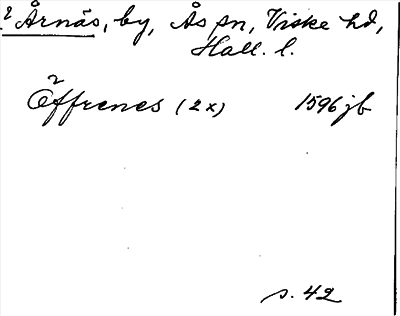 2 Årnäs, by, Ås sn, Viske hd,
Hall. l.
Öffrenes (2x) 1596 jb
s. 42